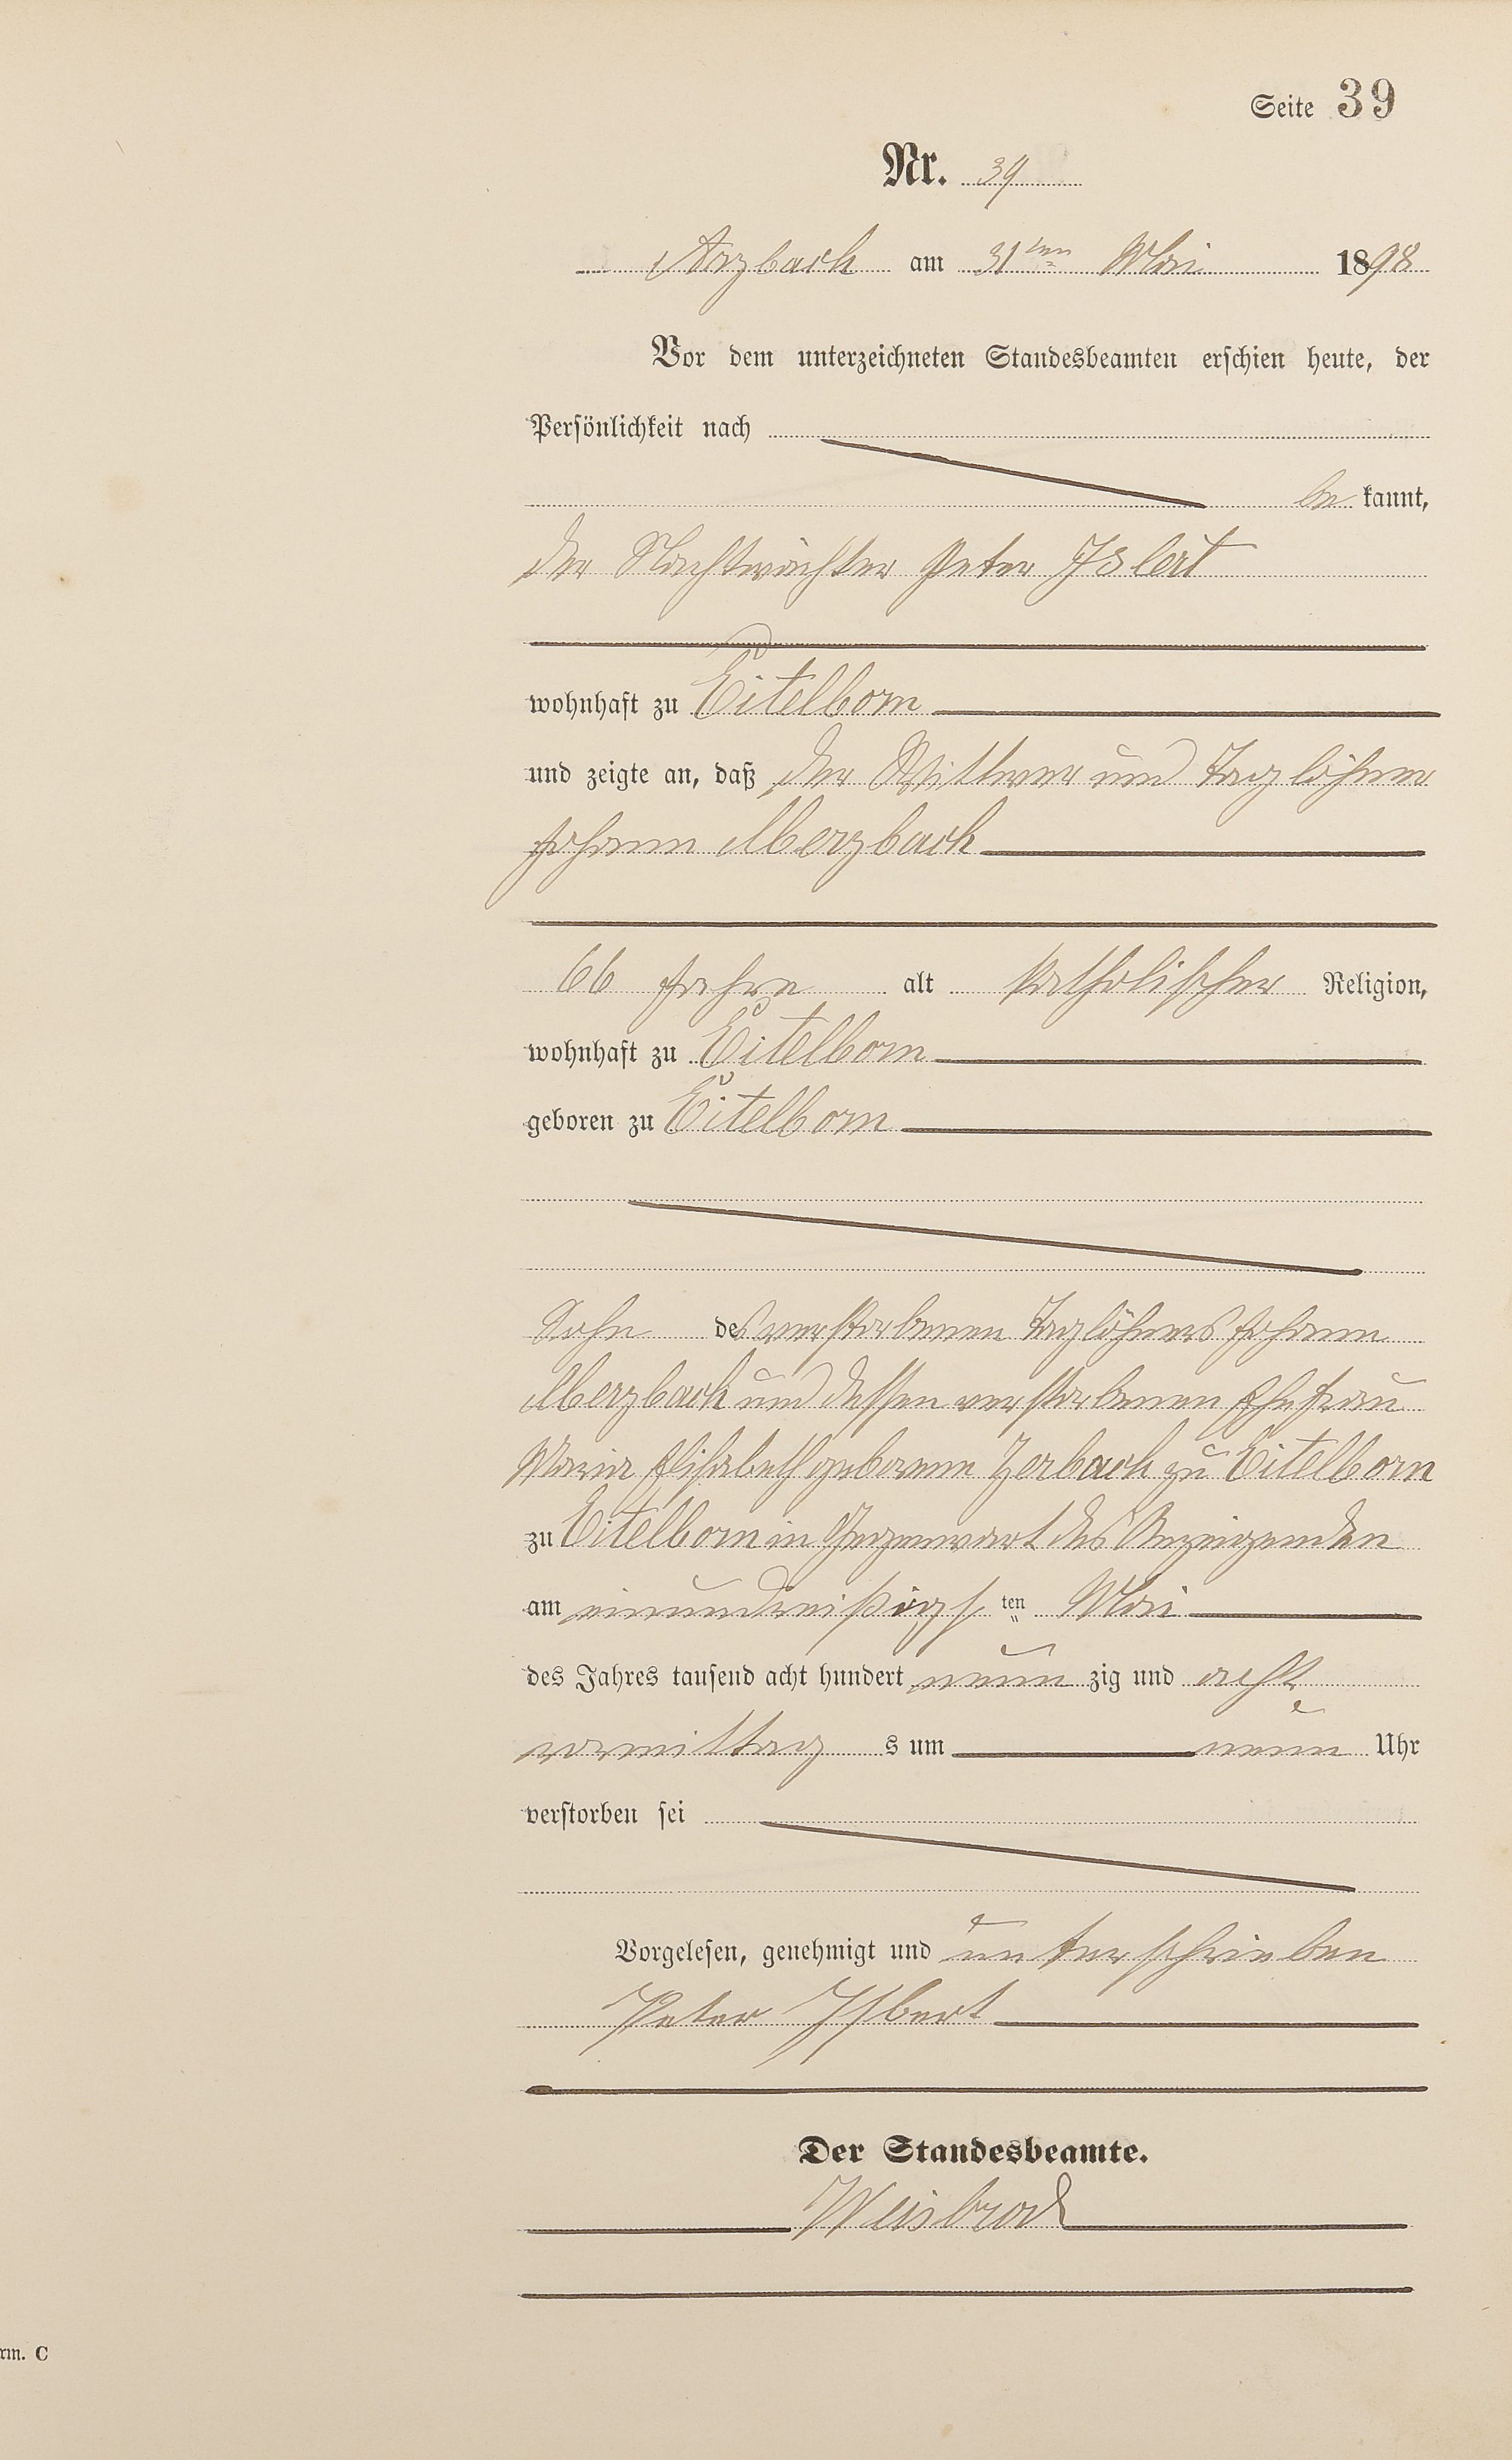 Seite 39
Nr. 39
Arzbach am 31ten Mai 1898
Vor dem unterzeichneten Standesbeamten erschien heute, der
Persönlichkeit nach
be kannt,
der Nachtwächter Peter
wohnhaft zu Eitelborn
und zeigte an, daß der Wittwer und Taglöhner
Johann Merzbach
66 Jahre alt katholischer Religion,
wohnhaft zu Eitelborn
geboren zu Eitelborn
Sohn des verstorbenen Taglöhners Johann
Merzbach und dessen verstorbenen Ehefrau
Maria Elisabeth geborene Zerbach zu Eitelborn
zu Eitelborn in Gegenwart des Anzeigenden
am einunddreißigsten Mai
des Jahres tausend acht hundert neun zig und acht
vormittag s um neun Uhr
verstorben sei
Vorgelesen, genehmigt und unterschrieben
Peter Isbert
Der Standesbeamte.
Weisbrod
rm. C